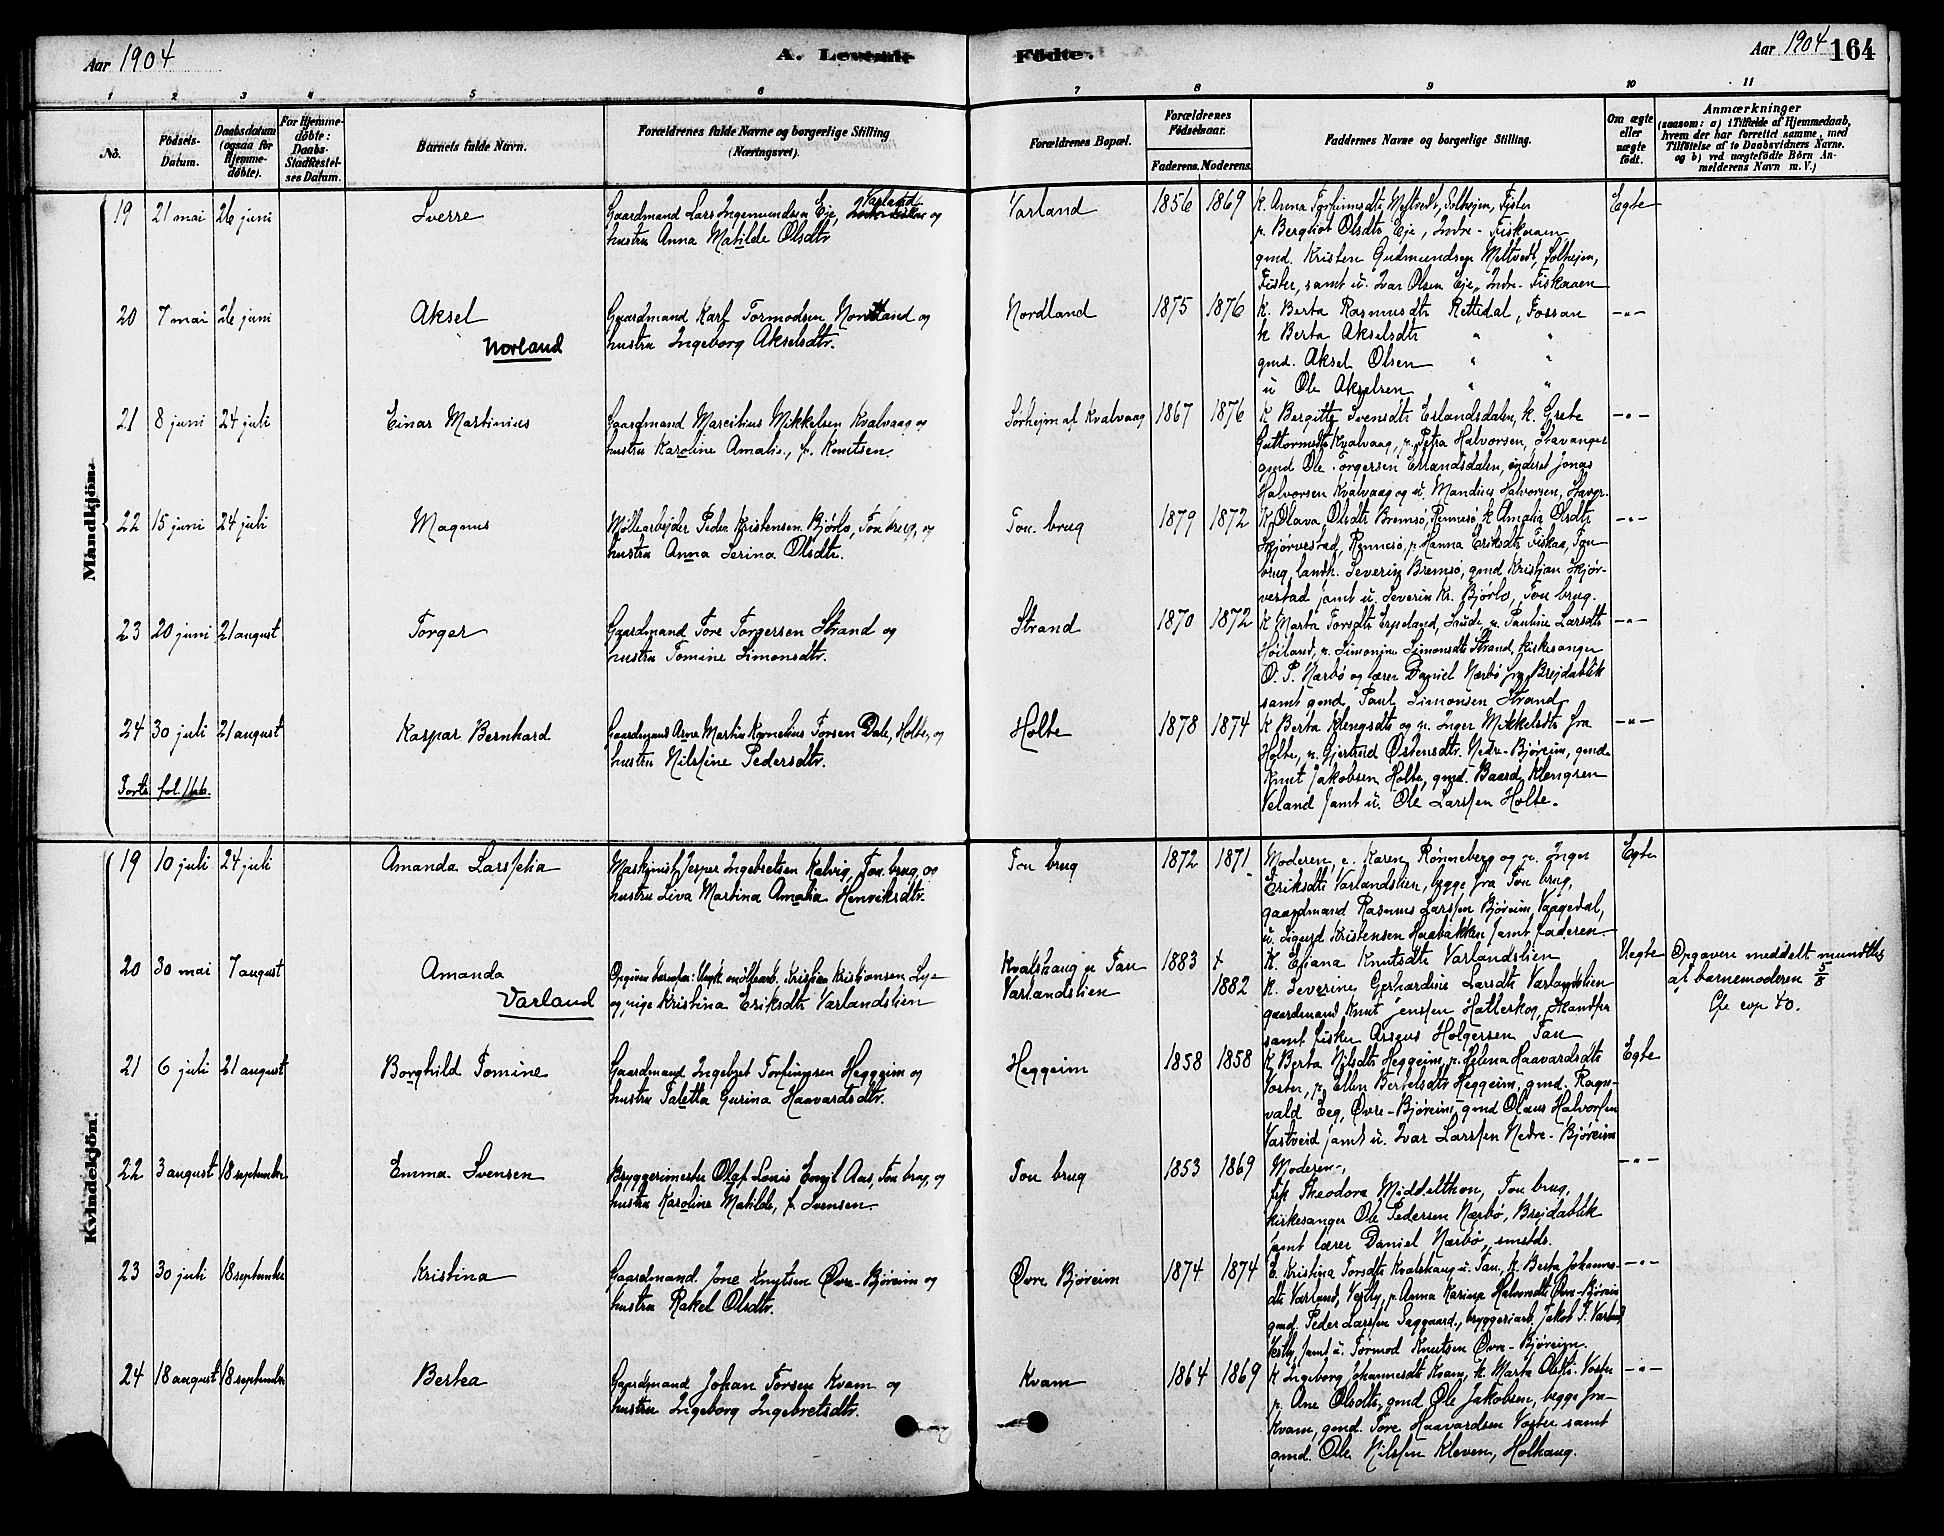 Aar 1904
A. Levende
Fødte.
Aar 1904
164
1 2 3 4 5 6 7 8 9 10 11
No.
Fødsels-Datum.
Daabsdatum (ogsaa for Hjemme-døbte).
For Hjemme-døbte: Daabs-Stadfæstel-ses Datum.
Barnets fulde Navn.
Forældrenes fulde Navne og borgerlige Stilling (Næringsvei).
Forældrenes Bopæl.
Forældrenes Fødselsaar.
Faderens. Moderens.
Faddernes Navne og borgerlige Stilling.
Om ægte eller uægte født.
Anmærkninger
(saasom: a) i Tilfælde af Hjemmedaab, hvem der har forrettet samme, med Tilføielse af to Daabsvidners Navne. og b) ved uægtefødte Børn An-melderens Navn m. V.)
Mandkjøn.
19 21 mai 26 juni Sverre
Gaardmand Lars Ingemundsen Eje, Varland og
hustru Anna Matilde Olsdtr.
Varland 1856 1869
K. Anna Torheimsdtr Meltvedt, Solhejen, Fister
p. Bergliot Olsdtr Eje, Indre-Fiskaaen
gmd. Kristen Gudmundsen Meltvedt, Solhejen,
Fister, samt u. Ivar Olsen Eje, Indre-Fiskaaen
Egte
20 7 mai 26 juni Aksel
Norland
Gaardmand Karl Tormodsen Nordland og
hustru Ingeborg Akselsdtr.
Nordland 1875 1876
K. Berta Rasmusdtr Rettedal, Fossan
k Berta Akselsdtr " "
gmd. Aksel Olsen " "
u Ole Akselsen " "
-"-
21 8 juni 24 juli Einar Martinius
Gaardmand Marcelius Mikkelsen Kvalvaag og
hustru Karoline Amalie, f. Knutsen.
Sørhejm al Kvalvaag 1867 1876
K Bergitte Svensdtr Erlandsdalen, k. Grete
Guttormsdtr Kvalvaag, p. Petra Halvorsen, Stavanger
gmd Ole Torgersen Erlandsdalen, Jonas
Halvorsen Kvalvaag og u. Mandius Halvorsen, Stavgr.
-"-
22 15 juni 24 juli Magnus
Møllearbejder Peder Kristensen Bjørlo, Tou brug, og
hustru Anna Serina Olsdtr.
Tou brug 1879 1872
K. Olava Olsdtr Bremsø, Rennesø k Amalia Olsdtr
Skjørvestad, Rennesø, p. Hanna Eriksdtr Fiskaa, Tou
brug, landh. Severin Bremsø, gmd Kristjan Skjør-
vestad samt u. Severin Kr. Bjørlo, Tou brug.
-"-
23 20 juni 21 august Torger
Gaardmand Tore Torgersen Strand og
hustru Tomine Simonsdtr.
Strand 1870 1872
K Marta Torsdtr Erseland, p. Pauline Larsdtr
Høiland, p. Simonine Simonsdtr Strand, kirkesanger
O. P. Nærbø og lærer Daniel Nærbø fra Brejdablik
samt gmd. Paul Simonsen Strand
-"-
24 30 juli 21 august Kaspar Bernhard
Gaardmand Arne Martin Kornelius Torsen Dale, Holte, og
hustru Nilsine Pedersdtr.
Holte 1878 1874
K Berta Klengsdtr og p. Inger Mikkelsdtr fra
Holte, p. Gjertrud Østensdtr. Nedre-Bjøreim, gmd.
Knut Jakobsen Holte, gmd. Baard Klengsen
Veland samt u. Ole Larssen Holte.
-"-
Forts. fol. 166.
Kvindekjøn.
19 10 juli 24 juli Amanda Larsselia
Maskinist Jesper Ingebretsen Kalvig, Tou brug, og
hustru Siva Martina Amalia Henriksdtr.
Tou brug 1872 1871
Moderen, e. Karen Rønneberg og p. Inger
Eriksdtr Varlandslien, begge fra Tou brug,
gaardmand Rasmus Larssen Bjøreim, Vaagedal,
u. Sigurd Kristensen Haabakken samt faderen
Egte
20 30 mai 7 august Amanda
Varland
Opgiven barnefar: Ungk. møllearb. Kristian Kristiansen
og pige Kristina Eriksdtr Varlandslien
Kvalshaug u Tau 1883 +
Varlandslien 1882
K. Efiana Knutsdtr Varlandslien
k. Severine Gerhardine Larsdtr Varlandslien
gaardmand Knut Jenssen Hatleskog,
samt fisker Holgersen Tau
Uegte
Opgaven meddelt mundtlig
af barnemoderen 5/8
21 6 juli 21 august Borghild Tomine
Gaardmand Ingebret Torfinnsen Heggeim og
hustru Taletta Gurina Haavardsdtr.
Heggeim 1858 1858
K Berta Nilsdtr Heggeim, p. Helena Haavardsdtr
Voster, p. Ellen Bertelsdtr Heggeim, gmd. Ragn-
vald Eeg, Øvre-Bjøreim, gmd Olaus Halvorsen
Vastveid samt u. Ivar Larssen Nedre-Bjøreim
Egte
22 3 august 18 september Emma Svensen
Bryggerimester Olaf Louis Emil Aas, Tou brug, og
hustru Karoline Matilde, f. Svensen.
Tou brug 1853 1869
Moderen,
frk Theodora Middelthon, Tou brug,
kirkesanger Ole Pedersen Nærbø, Brejdablik
samt lærer Daniel Nærbø, smstds.
-"-
23 30 juli 18 september Kristina
Gaardmand Jone Knutsen Øvre-Bjøreim og
hustru Rakel Olsdtr.
Øvre Bjøreim 1874 1874
E. Kristina Torsdtr Kvalshaug u. Tau, K. Berta Johannes-
dtr Varland, Vestly, p. Anna Karine Halvorsdtr Øvre-Bjøreim
gmd. Peder Larssen Saggaard, bryggeriarb. Jakob T. Varland
Vestly samt u. Tormod Knutsen Øvre-Bjøreim.
-"-
24 18 august 18 september Bertea
Gaardmand Johan Torsen Kvam og
hustru Ingeborg Ingebretsdtr.
Kvam 1864 1869
K Ingeborg Johannesdtr Kvam, k. Marta Olsdtr. Voster
p. Ane Olsdtr, gmd Ole Jakobsen, begge fra
Kvam, gmd. Tore Haavardsen Voster samt
gmd. Ole Nilssen Kleven, Holhaug.
-"-